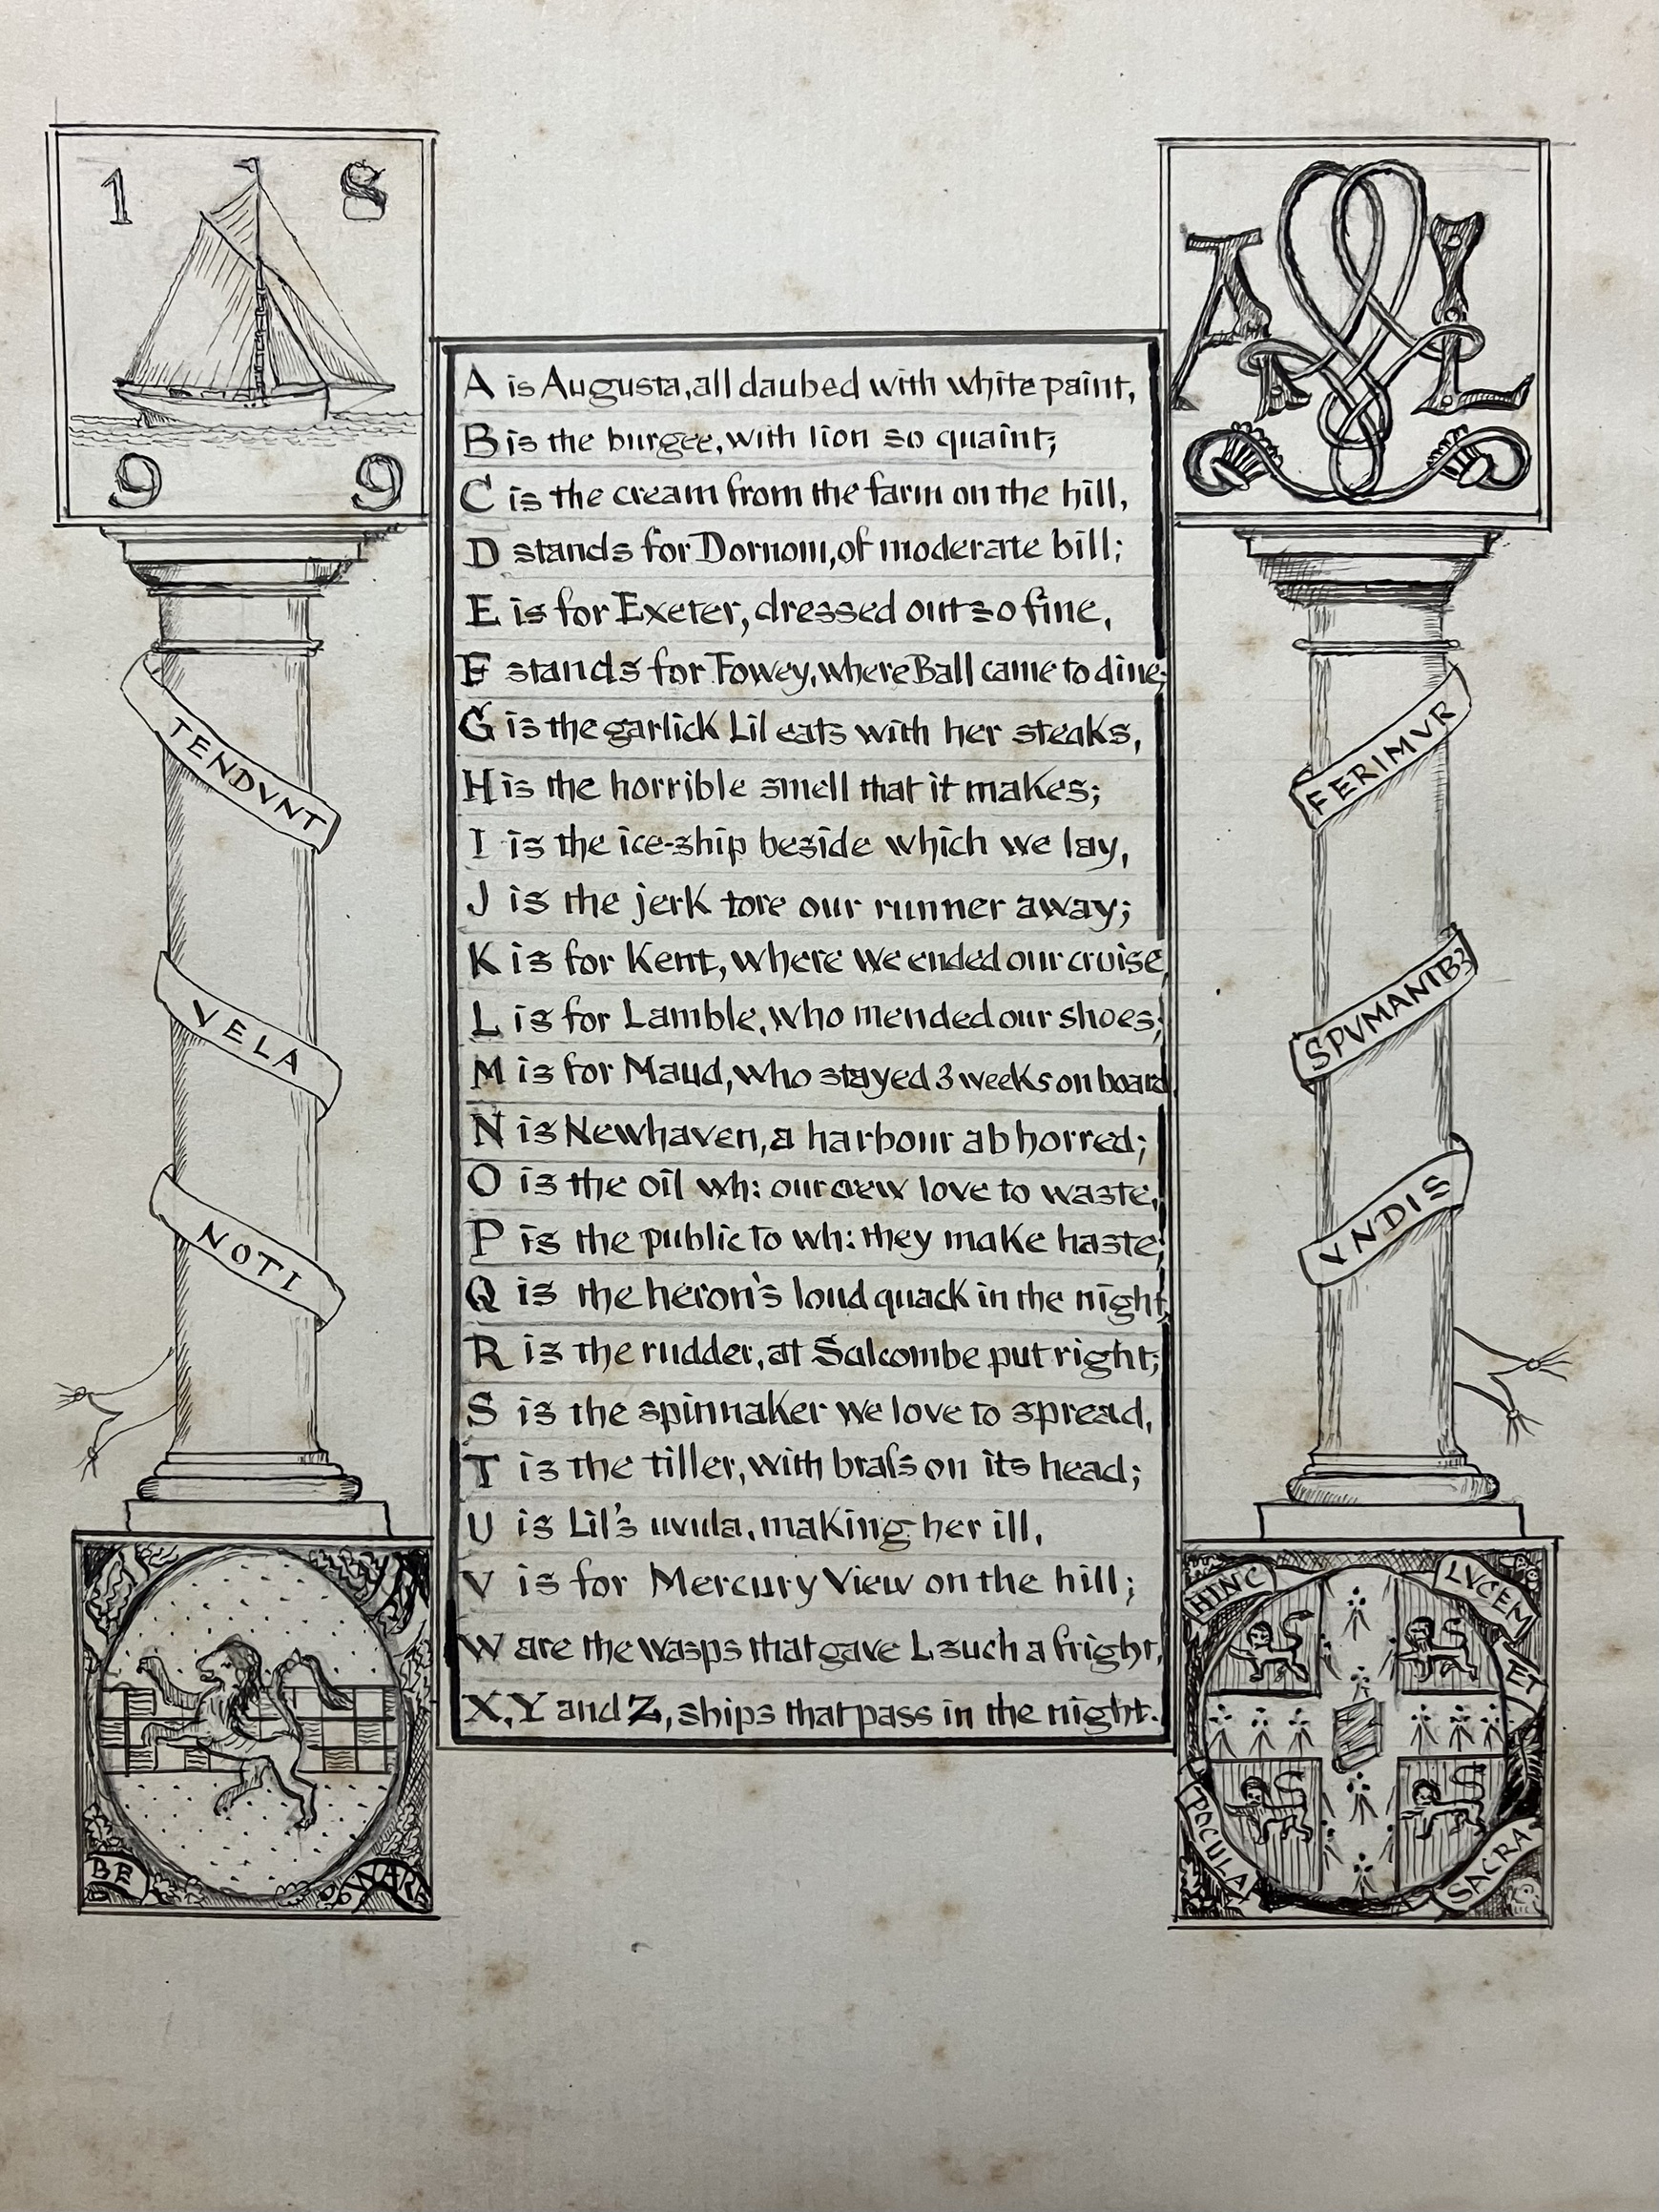 1 8
9 9
A L
A is Augusta, all daubed with white paint,
B is the burgee, with lion so quaint;
C is the cream from the farm on the hill,
D stands for Dornom, of moderate bill;
E is for Exeter, dressed out so fine,
F stands for Fowey, where Ball came to dine;
G is the garlick Lil eats with her steaks,
H is the horrible smell that it makes;
I is the ice-ship beside which we lay,
J is the jerk tore our runner away;
K is for Kent, where we ended our cruise,
L is for Lamble, who mended our shoes;
M is for Maud, who stayed 3 weeks on board,
N is Newhaven, a harbour abhorred;
O is the oil wh: our crew love to waste,
P is the public to wh: they make haste;
Q is the heron's loud quack in the night,
R is the rudder, at Salcombe put right;
S is the spinnaker we love to spread,
T is the tiller, with braſs on its head;
U is Lil's uvula, making her ill,
V is for Mercury View on the hill;
W are the wasps that gave L such a fright,
X, Y and Z, ships that pass in the night.
TENDVNT
VELA
NOTI
FERIMVR
SPVMANTBꝫ
VNDIS
BE WARE
HINC LVCEM ET
POCULA SACRA